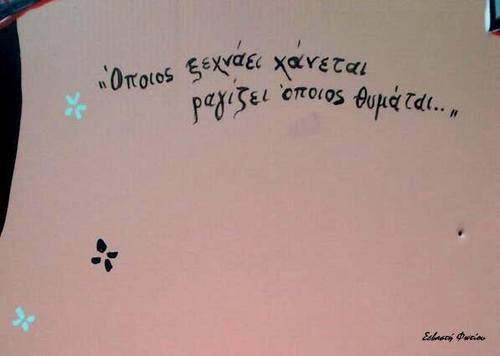 „Όποιος ξεχνάει χάνεται
ραγίζει όποιος θυμάται..„
Σεβαστή Φωτίου